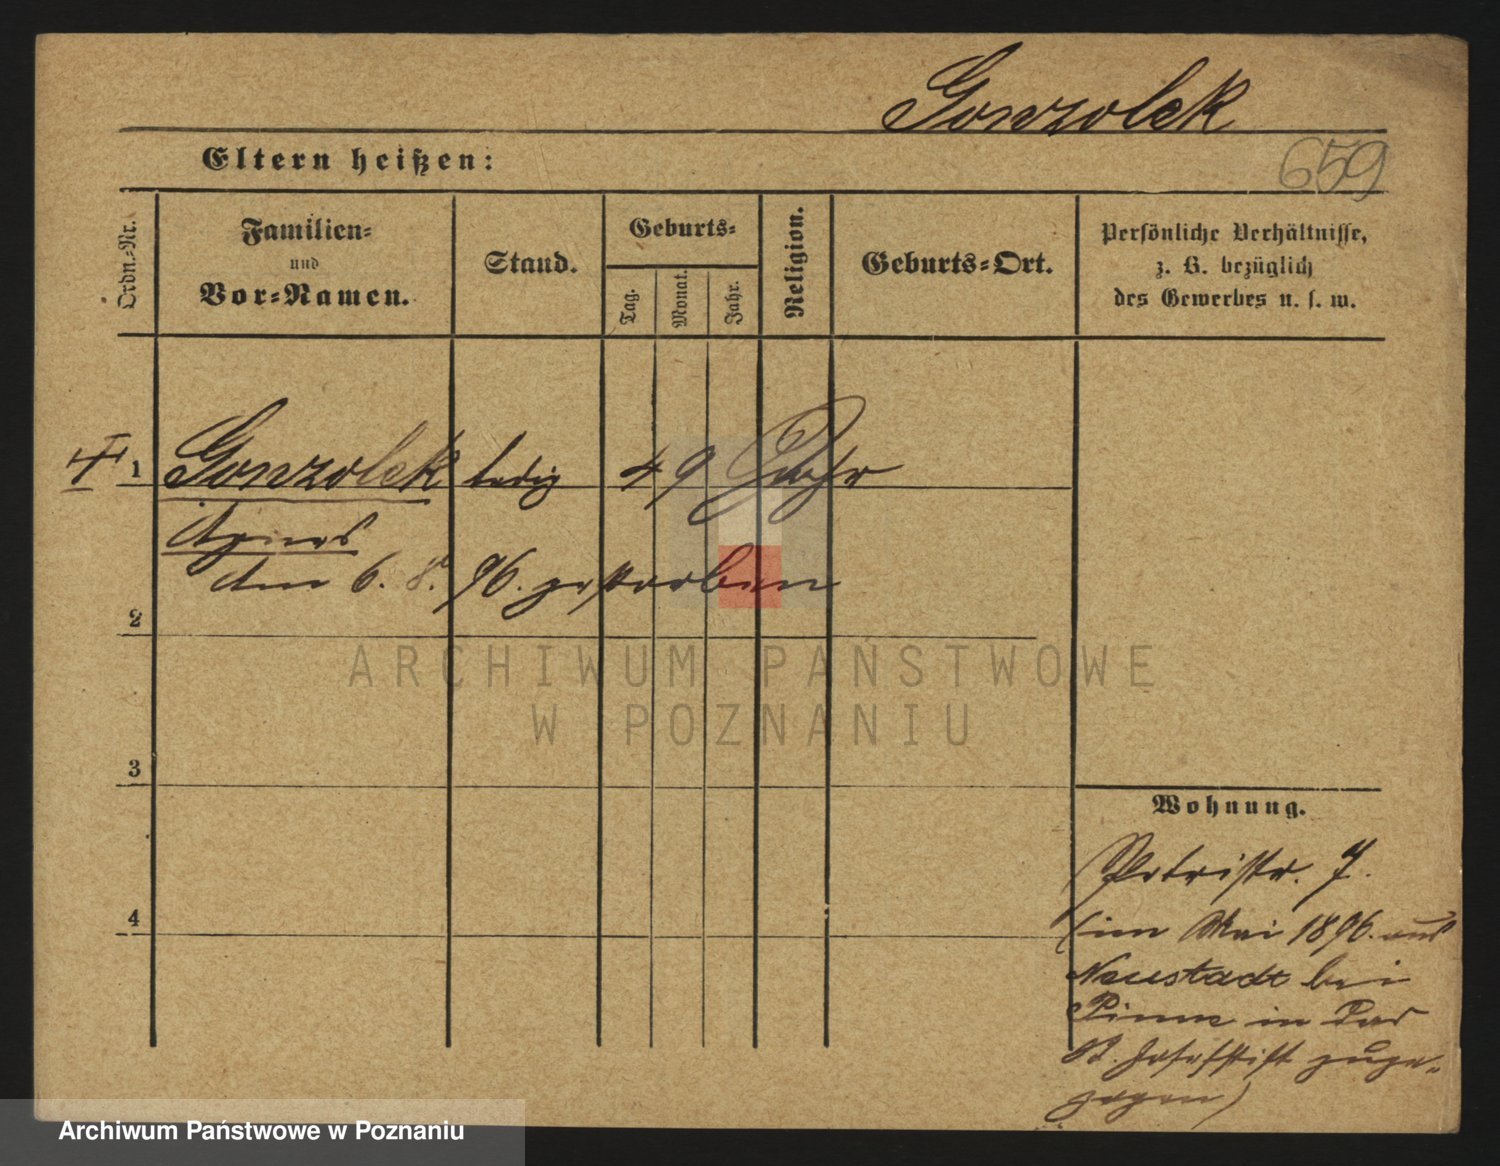 Gonzolek
659
Eltern heißen:
Ordn.-Nr.
Familien-
und
Vor-Namen.
Stand.
Geburts-
Tag.
Monat.
Jahr.
Religion.
Geburts-Ort.
Persönliche Verhältnisse,
z. B. bezüglich
des Gewerbes u. s. w.
1 Gonzolek ledig 49 Jahr
Agnes
den 6. 8. 96. gestorben
2
3
4
Wohnung.
Petristr. 7.
(im Mai 1896. aus
Neustadt bei
Pinne in das
St. Josefstift zuge-
zogen)
ARCHIWUM PAŃSTWOWE
W POZNANIU
Archiwum Państwowe w Poznaniu